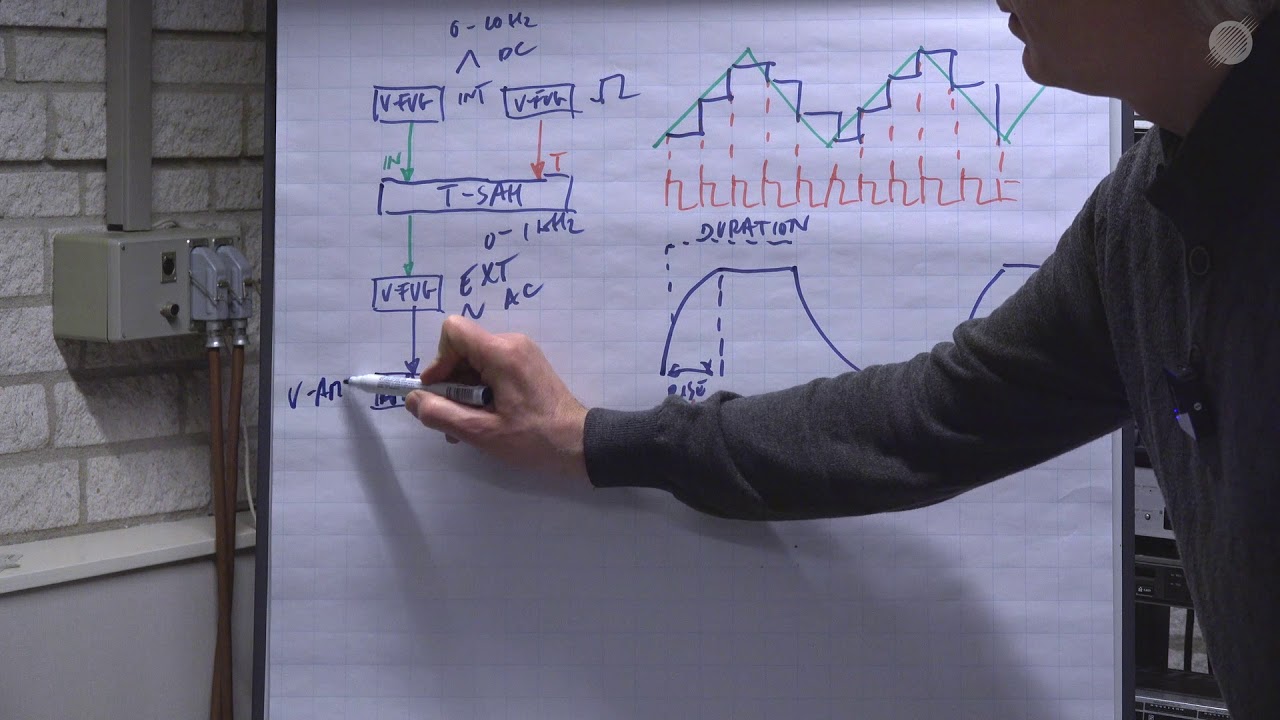 0-10Hz
DC
V-FUG INT V-FUG
IN T
T-SAH
0-1kHz
V-FUG EXT
AC
V-AM
DURATION
RISE